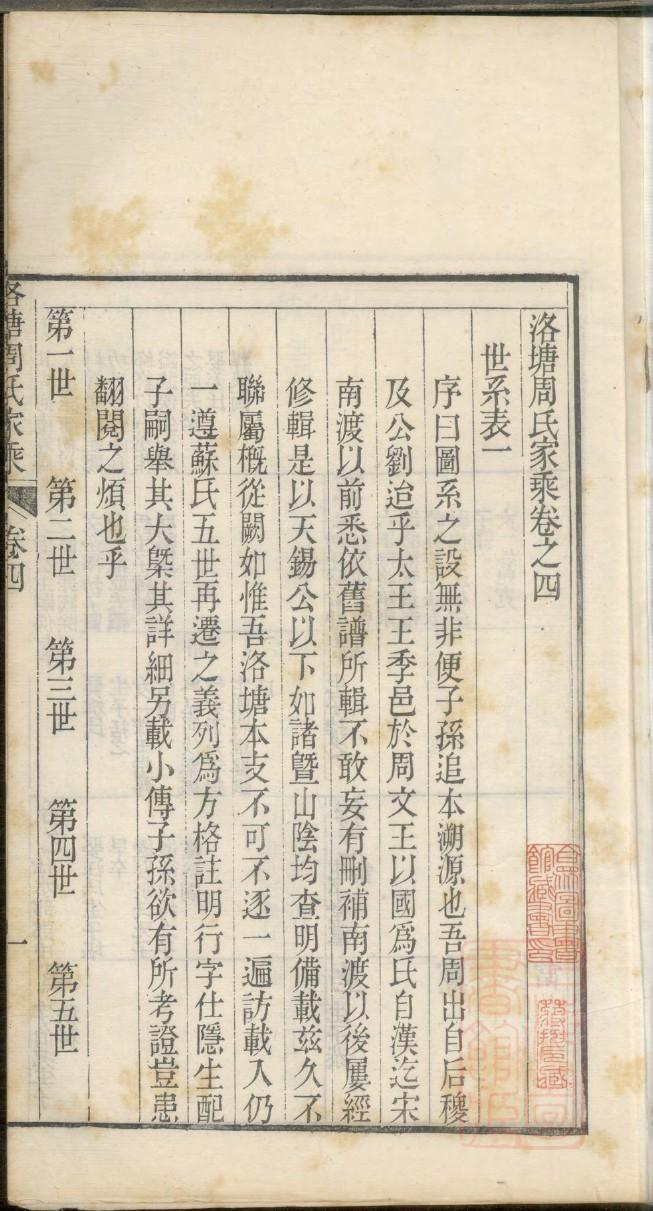 洛塘周氏家乘卷之四
世系表一
序曰圖系之設無非便子孫追本溯源也吾周出自后稷
及公劉迨乎太王王季邑於周文王以國爲氏自漢迄宋
南渡以前悉依舊譜所輯不敢妄有刪補南渡以後屢經
修輯是以天錫公以下如諸暨山陰均查明備載兹久不
聯屬概從闕如惟吾洛塘本支不可不逐一遍訪載入仍
一遵蘇氏五世再遷之義列爲方格註明行字仕隱生配
子嗣舉其大槩其詳細另載小傳子孫欲有所考證豈患
翻閱之煩也乎
第一世 第二世 第三世 第四世 第五世
洛塘周氏家乘 卷四 一